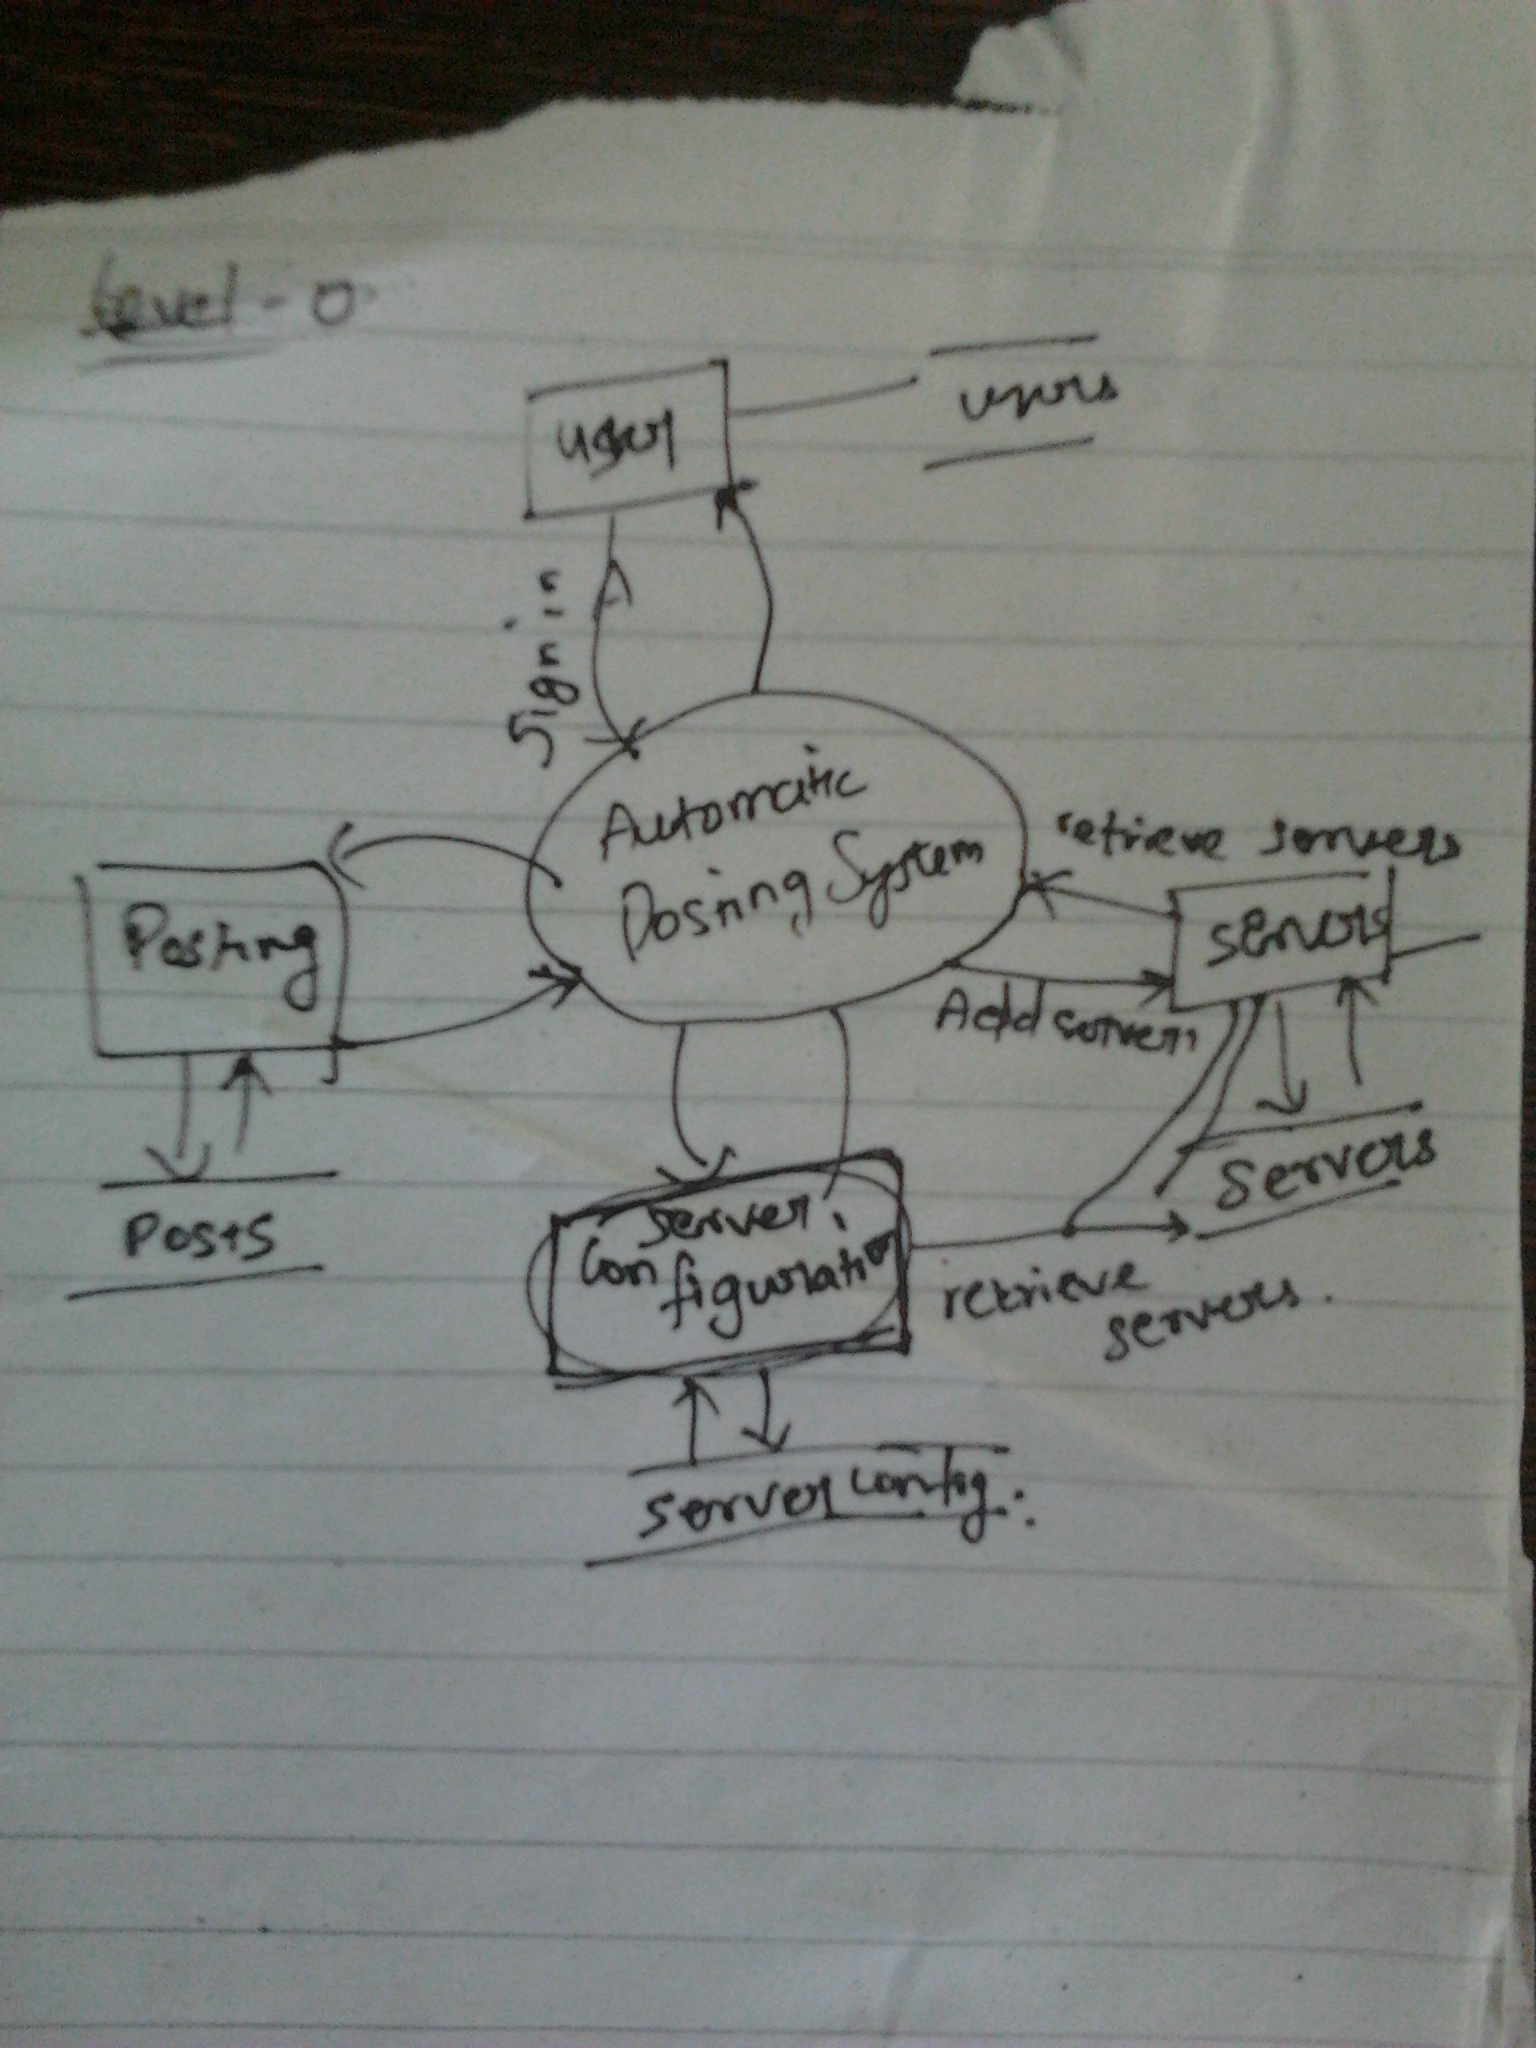 Level - 0
user
users
Sign in
Automatic
Posting System
retrieve servers
servers
Add servers
Posting
Posts
Servers
Server
Configuration
retrieve
servers.
server config.